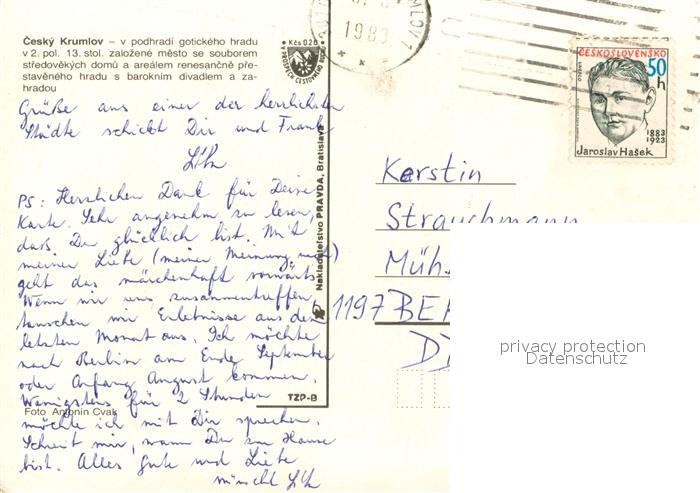 Český Krumlov – v podhradí gotického hradu
v 2. pol. 13. stol. založené město se souborem
středověkých domů a areálem renesančně pře-
stavěného hradu s barokním divadlem a za-
hradou
Kčs 0,20
1983
ČESKOSLOVENSKO
50 h
1883
1923
Jaroslav Hašek
Grüße aus einer der herrlichsten
Städte schickt Dir und Frank
PS: Herzlichen Dank für Deine
Karte. Sehr angenehm zu lesen,
daß Du glücklich bist. Mit
meiner Liebe (meiner Meinung nach)
geht das märchenhaft vorwärts.
Wenn wir uns zusammentreffen,
tauschen wir Erlebnisse aus dem
letzten Monat aus. Ich möchte
nach Berlin am Ende September
oder Anfang August kommen.
Wenigstens für 2 Stunden
möchte ich mit Dir sprechen.
Schreib mir, wann Du zu Hause
bist. Alles gute und Liebe
wünscht
Foto Antonín Cvak
Nakladatelství PRAVDA, Bratislava
TZP-B
Kerstin
Strauchmann
Müh
1197 BER
privacy protection
Datenschutz